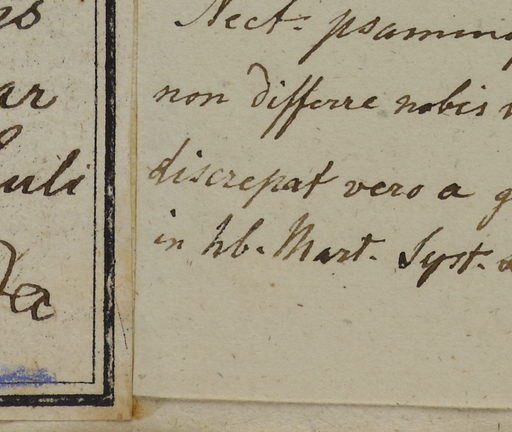 ar
uli
Nect. psammi
non differre nobis
discrepat vero a g
in hb. Mart. Syst.